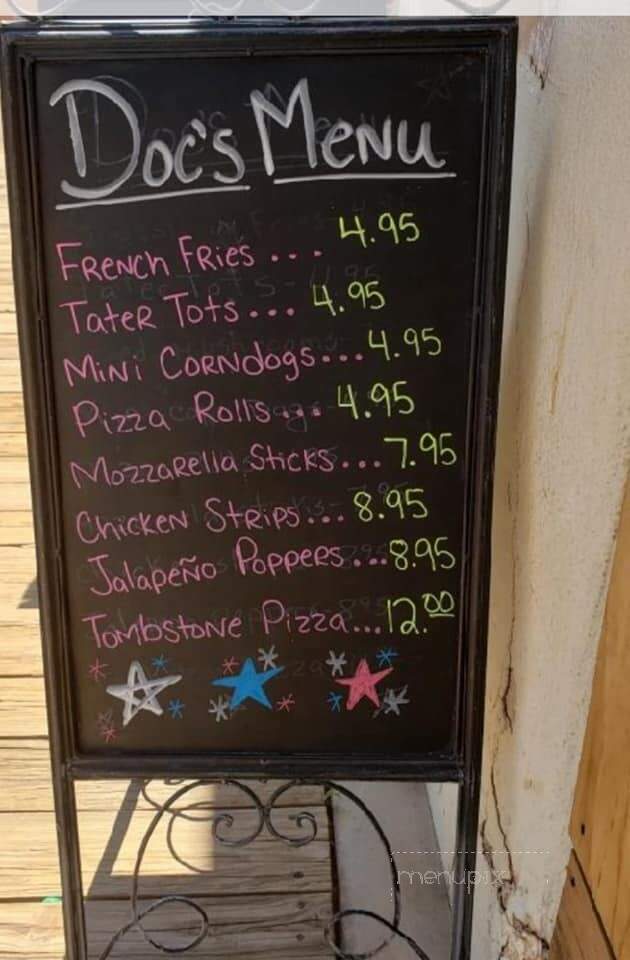 Doc's Menu
French Fries ... 4.95
Tater Tots... 4.95
Mini Corndogs...4.95
Pizza Rolls... 4.95
Mozzarella Sticks...7.95
Chicken Strips... 8.95
Jalapeño Poppers...8.95
Tombstone Pizza...12.00
menupix